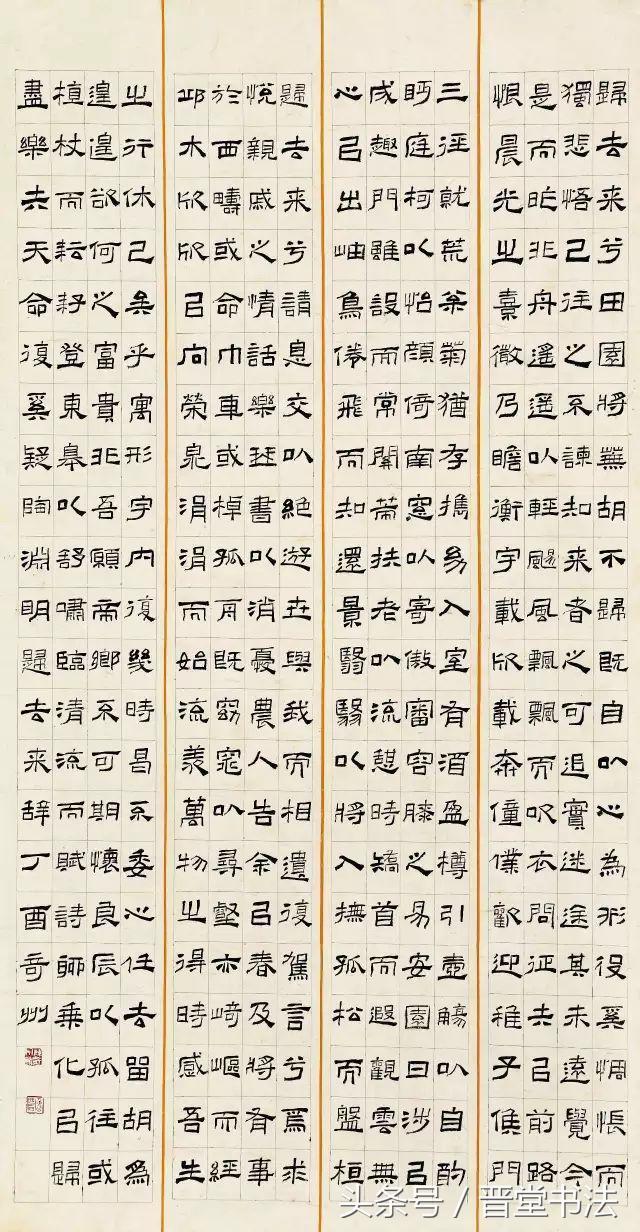 歸去来兮田園將蕪胡不歸既自以心為形役奚惆悵而
獨悲悟已往之不諫知来者之可追實迷途其未遠覺今
是而昨非舟遥遥以輕颺風飄飄而吹衣問征夫以前路
恨晨光之熹微乃瞻衡宇載欣載奔僮僕歡迎稚子候門
三徑就荒松菊猶存攜幼入室有酒盈樽引壺觴以自酌
眄庭柯以怡顏倚南窗以寄傲審容膝之易安園日涉以
成趣門雖設而常關策扶老以流憩時矯首而遐觀雲無
心以出岫鳥倦飛而知還景翳翳以將入撫孤松而盤桓
歸去来兮請息交以絕遊世與我而相遺復駕言兮焉求
悅親戚之情話樂琴書以消憂農人告余以春及將有事
於西疇或命巾車或棹孤舟既窈窕以尋壑亦崎嶇而經
邱木欣欣以向榮泉涓涓而始流羨萬物之得時感吾生
之行休已矣乎寓形宇內復幾時曷不委心任去留胡為
遑遑欲何之富貴非吾願帝鄉不可期懷良辰以孤往或
植杖而耘耔登東皋以舒嘯臨清流而賦詩聊乘化以歸
盡樂夫天命復奚疑陶淵明歸去来辞丁酉奇州
头条号 / 晋堂书法